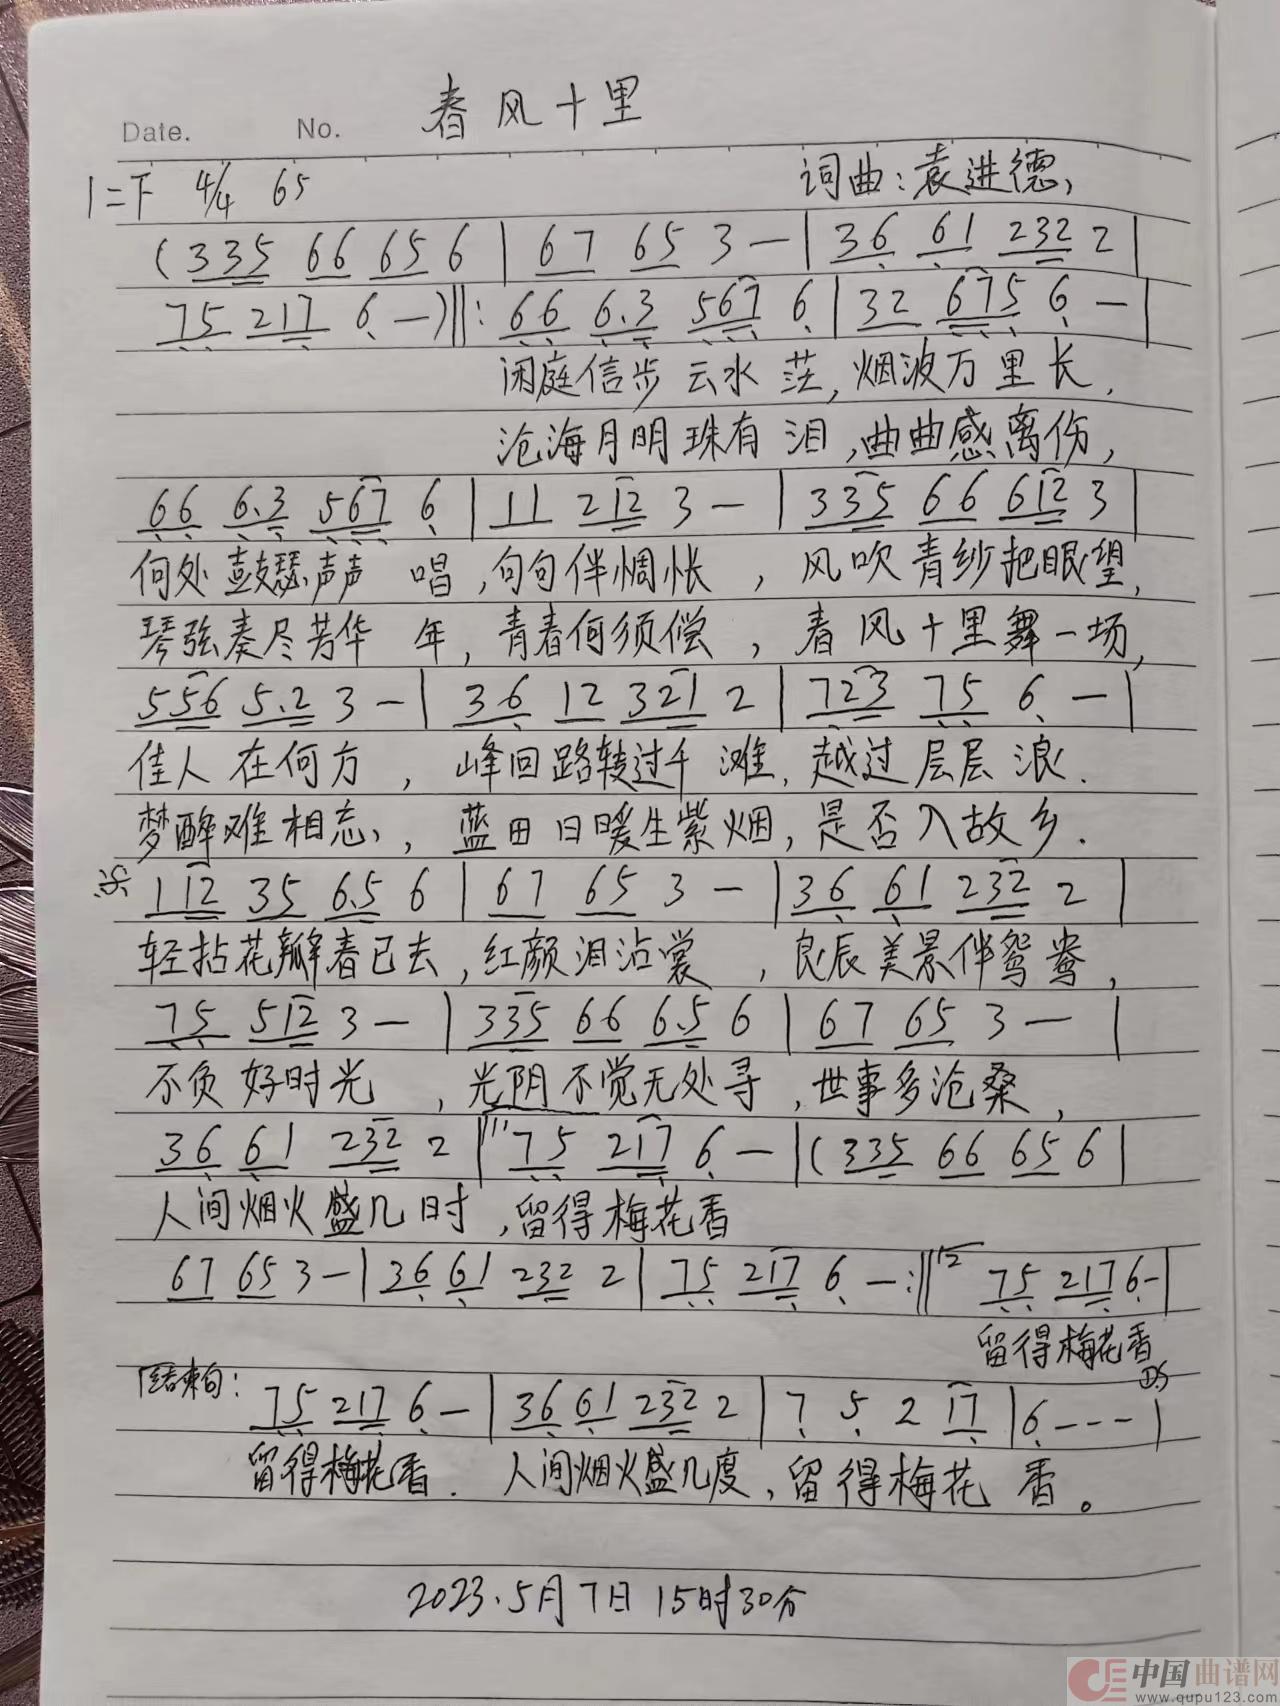 春风十里
Date. No.
1=F 4/4 65
词曲:袁进德,
(335 66 65 6 | 67 65 3 — | 36 61 232 2 |
75 217 6 —)‖: 66 6.3 567 6 | 32 675 6 — |
闲庭信步云水茫,烟波万里长,
沧海月明珠有泪,曲曲感离伤,
66 6.3 567 6 | 11 212 3 — | 335 66 612 3 |
何处鼓瑟声声唱,句句伴惆怅,风吹青纱把眼望,
琴弦奏尽芳华年,青春何须偿,春风十里舞一场,
556 5.2 3 — | 36 12 321 2 | 723 75 6 — |
佳人在何方,峰回路转过千滩,越过层层浪.
梦醉难相忘,,蓝田日暖生紫烟,是否入故乡.
112 35 6.5 6 | 67 65 3 — | 36 61 232 2 |
轻拈花瓣春已去,红颜泪沾裳,良辰美景伴鸳鸯,
75 512 3 — | 335 66 6.5 6 | 67 65 3 — |
不负好时光,光阴不觉无处寻,世事多沧桑,
36 61 232 2 ‖ 75 217 6 — | (335 66 65 6 |
人间烟火盛几时,留得梅花香
67 65 3 — | 36 61 232 2 | 75 217 6 — :‖ 12 75 217 6 — |
留得梅花香
D.S
结束句: 75 217 6 — | 36 61 232 2 | 7 5 2 17 | 6 - - - |
留得梅花香. 人间烟火盛几度,留得梅花香。
2023.5月7日 15时30分
中国曲谱网
www.qupu123.com